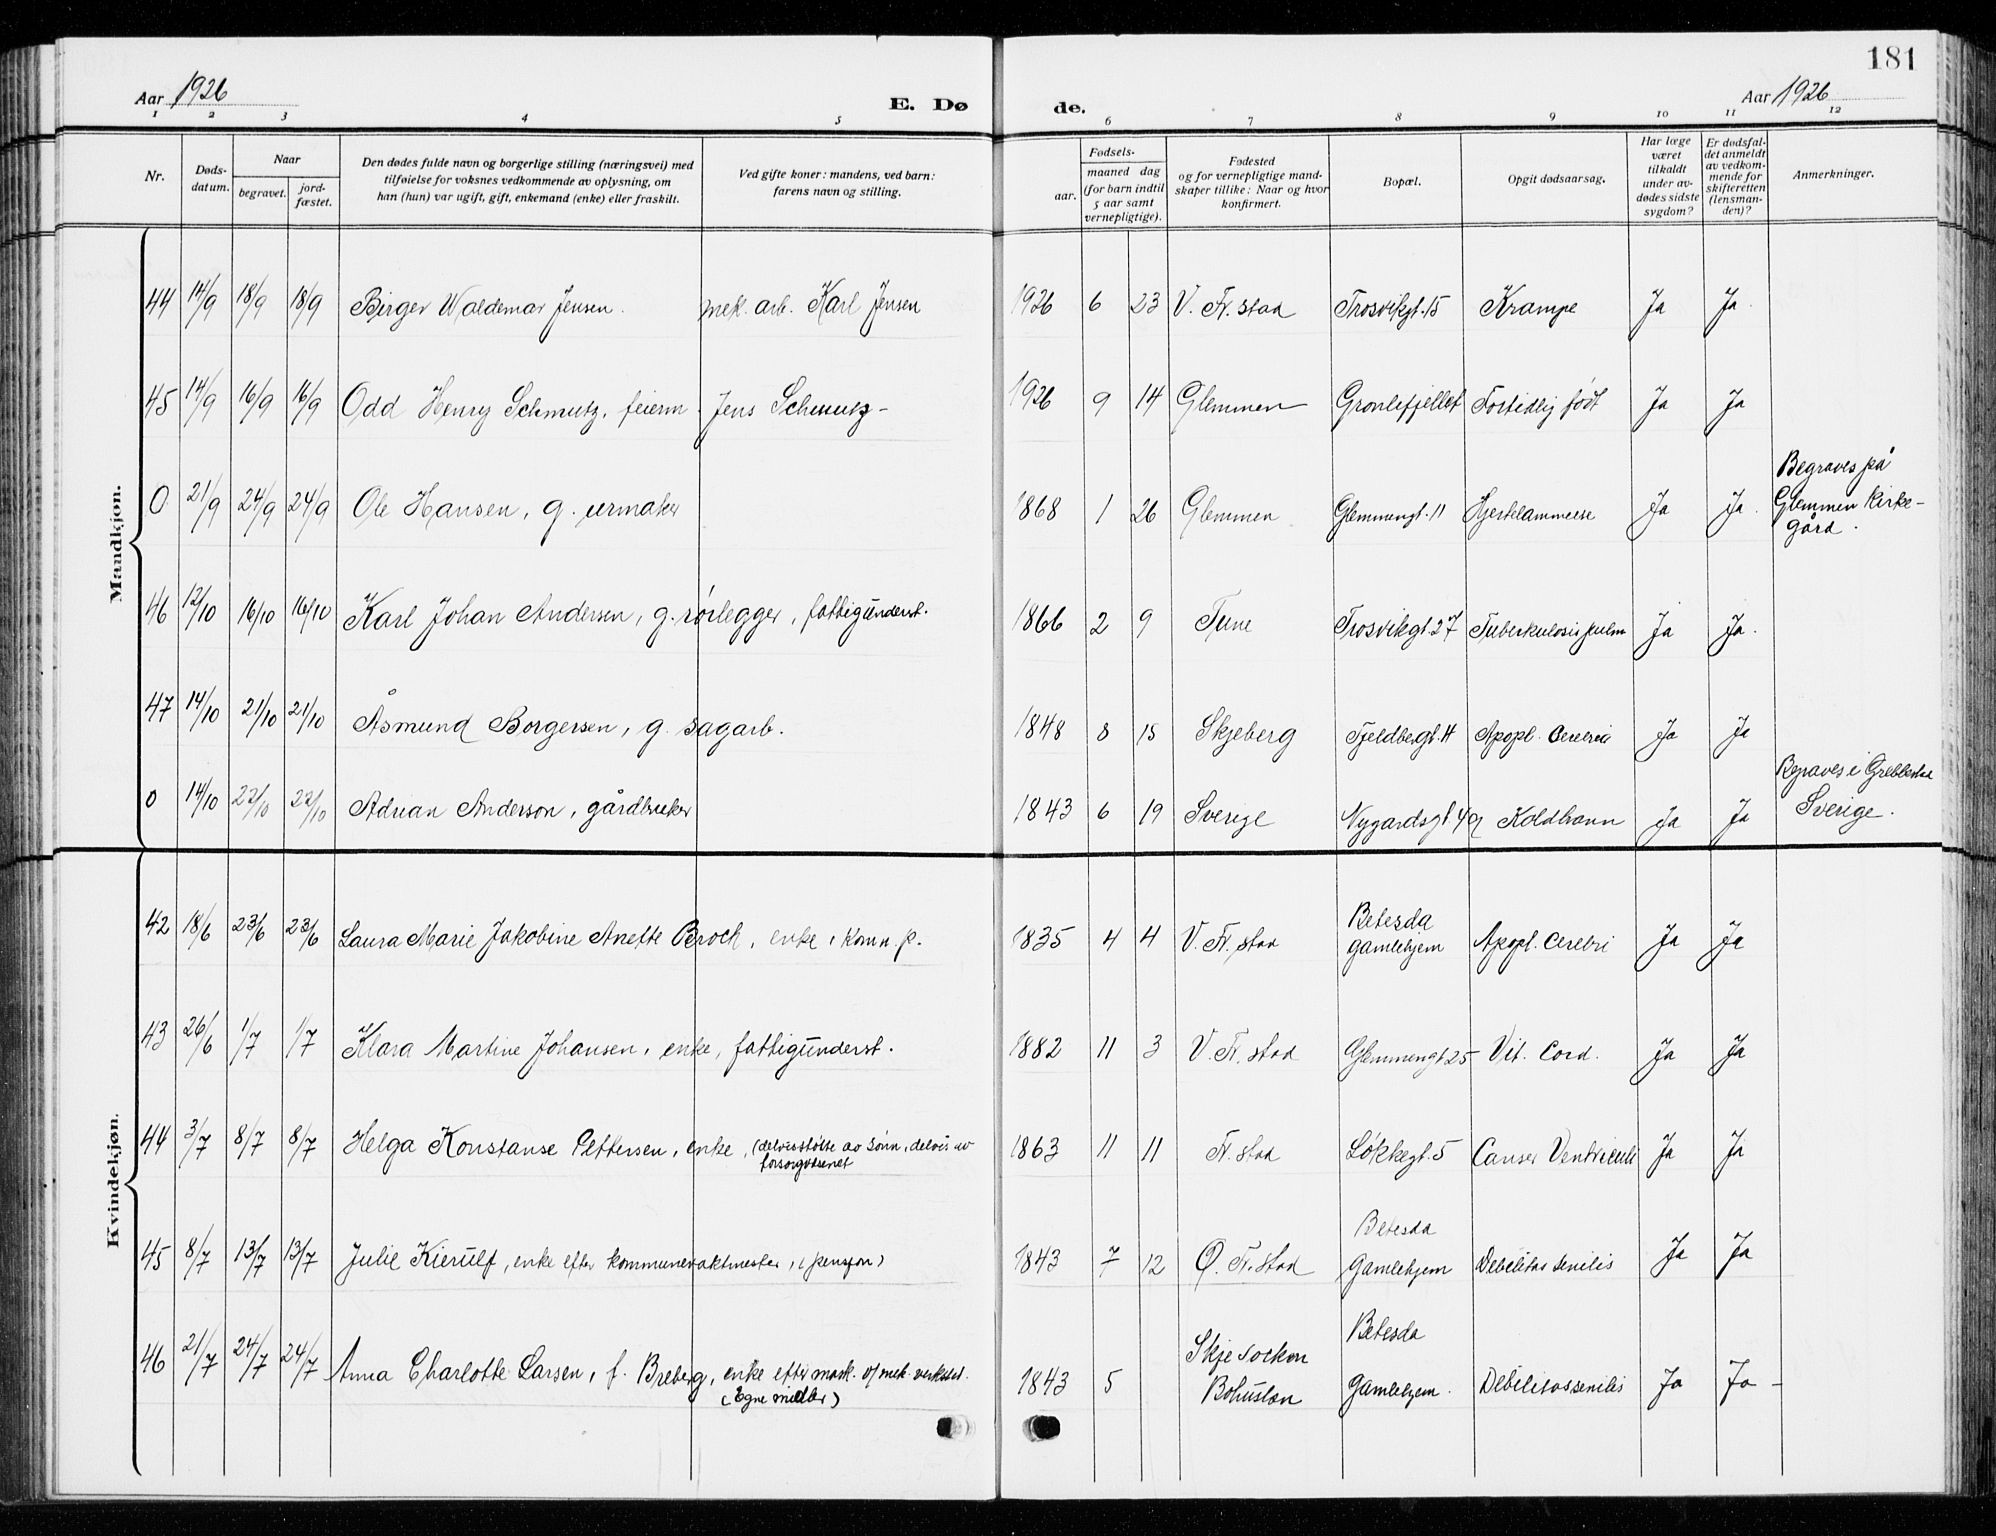 181
Aar 1926
E. Dø
de.
Aar 1926
1 2 3 4 5 6 7 8 9 10 11 12
Nr.
Døds-
datum.
Naar
begravet.
jord-
fæstet.
Den dødes fulde navn og borgerlige stilling (næringsvei) med
tilføielse for voksnes vedkommende av oplysning, om
han (hun) var ugift, gift, enkemand (enke) eller fraskilt.
Ved gifte koner: mandens, ved barn:
farens navn og stilling.
Fødsels-
aar.
maaned dag
(for barn indtil
5 aar samt
vernepligtige).
Fødested
og for vernepligtige mand-
skaper tillike: Naar og hvor
konfirmert.
Bopæl.
Opgit dødsaarsag.
Har læge
været
tilkaldt
under av-
dødes sidste
sygdom?
Er dødsfal-
det anmeldt
av vedkom-
mende for
skifteretten
(lensman-
den)?
Anmerkninger.
Mandkjøn.
44 14/9 18/9 18/9 Birger Waldemar Jensen. mek. arb. Karl Jensen 1926 6 23 V. Fr.stad Trosvikgt. 15 Krampe Ja Ja.
45 14/9 16/9 16/9 Odd Henry Schmutz, feierm. Jens Schmutz - 1926 9 14 Glemmen Grønlifjellet Fortidlig født Ja Ja
Begraves på
0 21/9 24/9 24/9 Ole Hansen, g. urmaker 1868 1 26 Glemmen Glemmengt. 11 Hjertelammelse Ja Ja. Glemmen Kirke-
gård.
46 12/10 16/10 16/10 Karl Johan Andersen, g. rørlegger, fattigunderst. 1866 2 9 Tune Trosvikgt. 27 Tuberkulosis pulm Ja Ja.
47 14/10 21/10 21/10 Åsmund Borgersen, g. sagarb. 1848 8 15 Skjeberg Fjeldbergt. 4 Apopl. Cerebri Ja Ja
Begraves i Grebbestad
0 14/10 22/10 22/10 Adrian Anderson, gårdbruker 1843 6 19 Sverige Nygaardsgt 49 Koldbrann Ja Ja Sverige.
Kvindekjøn.
Betesda
42 18/6 23/6 23/6 Laura Marie Jakobine Anette Brock, enke, kom. p. 1835 4 4 V. Fr. stad gamlehjem Apopl. Cerebri Ja Ja
43 26/6 1/7 1/7 Klara Martine Johansen, enke, fattigunderst. 1882 11 3 V. Fr. stad Glemmengt 25 Vit. Cord. Ja Ja
44 3/7 8/7 8/7 Helga Konstanse Pettersen, enke, (delvis støtte av sønn, delvis av 1863 11 11 Fr. stad Løkkegt. 5 Canser Ventriculi Ja Ja
forsorgvesenet
Betesda
45 8/7 13/7 13/7 Julie Kierulf, enke efter kommunevaktmester, (pensjon) 1843 7 12 Ø. Fr. stad Gamlehjem Debilitas senilis Ja Ja
Skje socken Betesda
46 21/7 24/7 24/7 Anna Charlotte Larsen, f. Breberg, enke efter mask. v/ mek. verksted. 1843 5 Bohuslän Gamlehjem. Debilitas senilis Ja Ja -
(Egne midler)